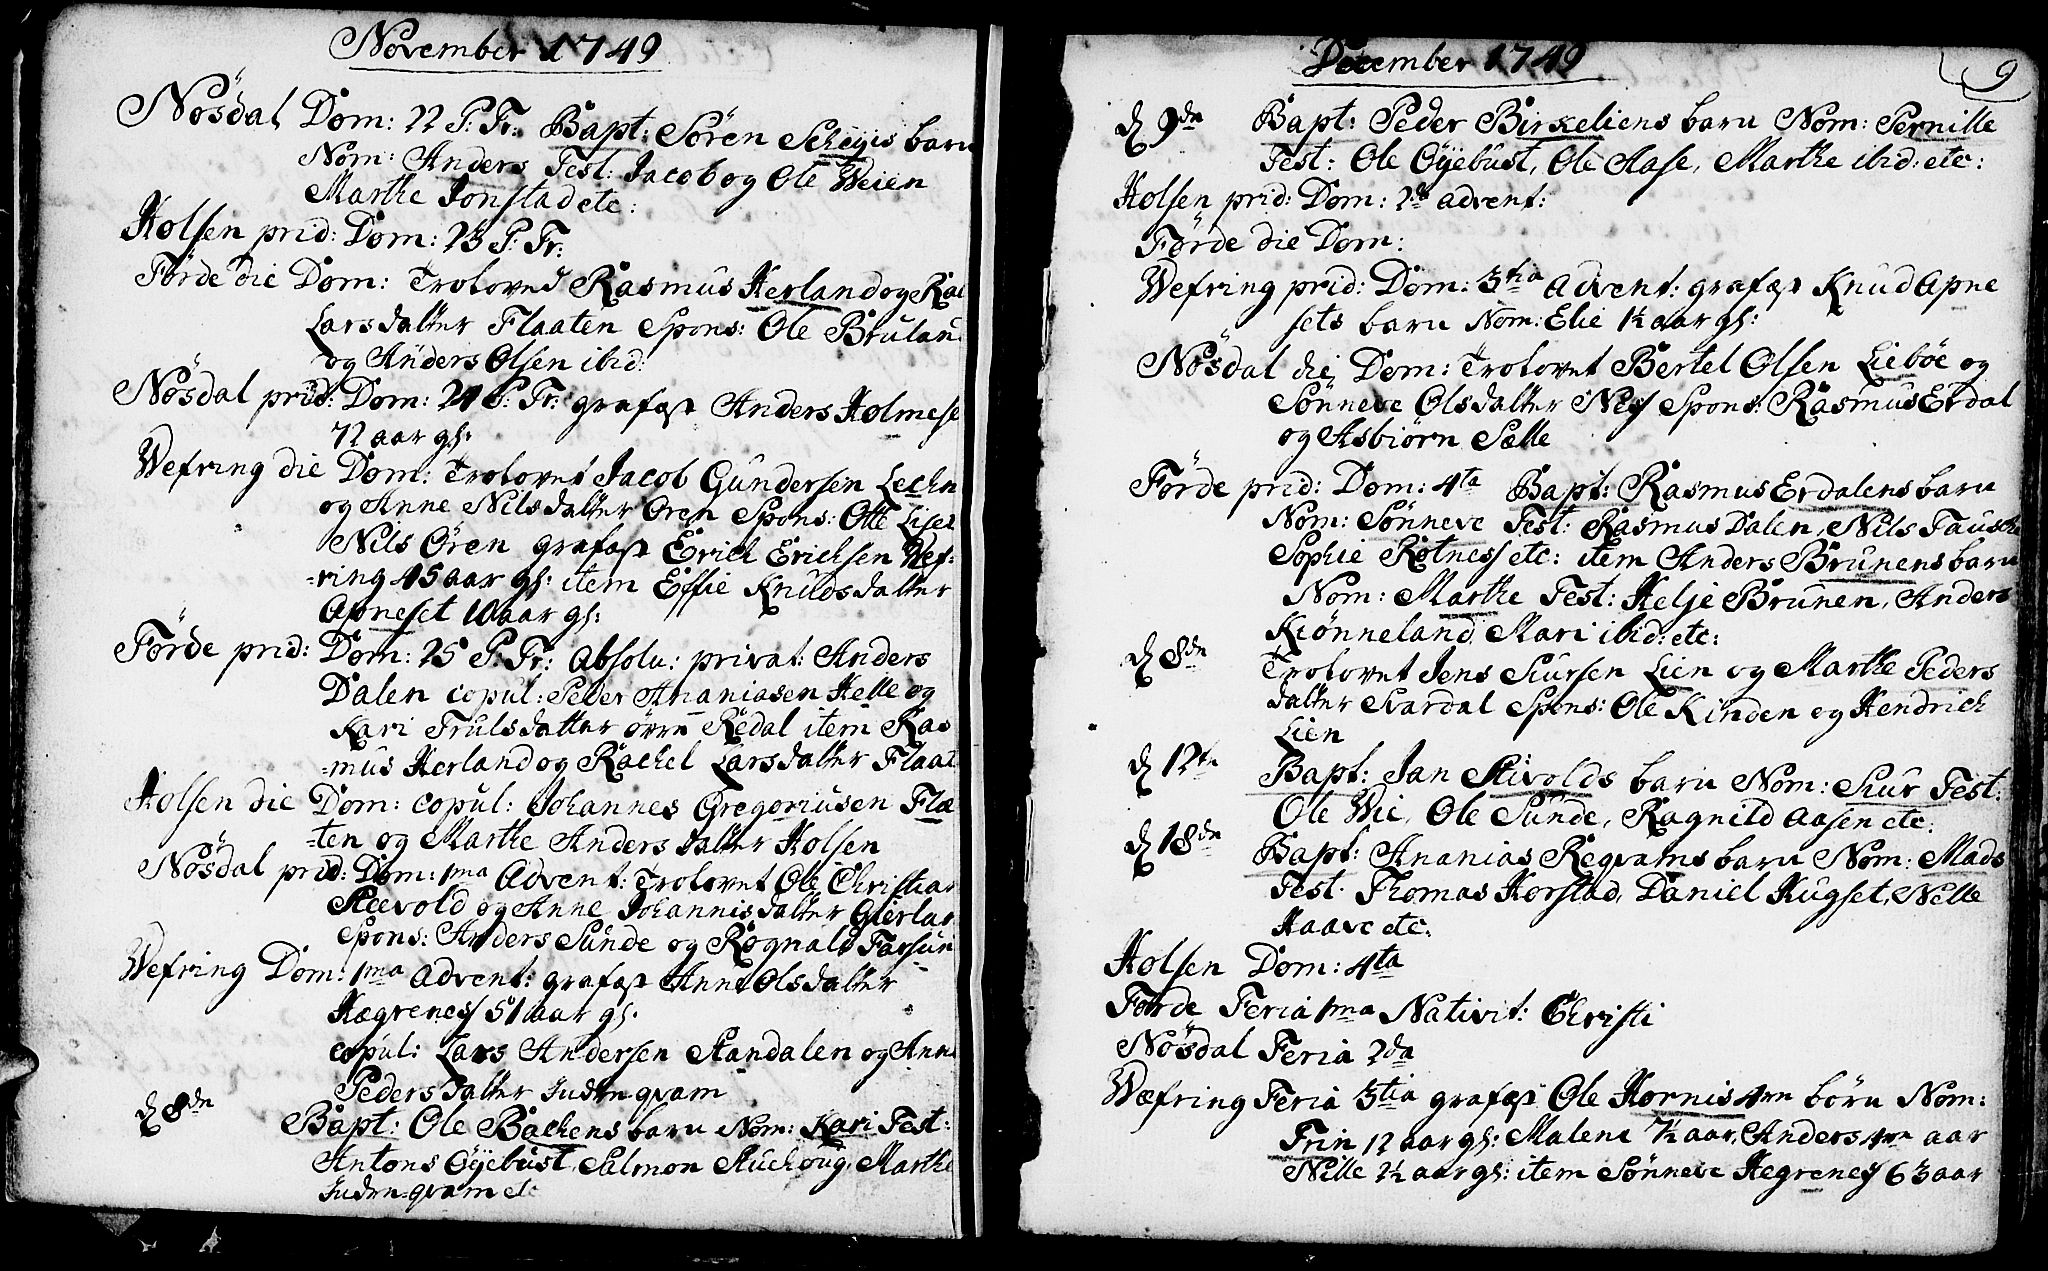 November 1749
Nösdal Dom: 22 P: Tr: Bapt: Sören Scheyis barn
Nom: Anders Test: Jacob og Ole Weien
Marthe Jonstad etc:
Holsen prid: Dom: 23 P: Tr:
Förde die Dom: Troloved Rasmus Herland og Ra
Larsdatter Flaaten Spons: Ole Brulan
og Anders Olsen ibid:
Nösdal prid: Dom: 24 P: Tr: grafæst Anders Holmese
72 aar gl:
Wefring die Dom: Trolovet Jacob Gundersen
og Anne Nilsdatter Ören Spons: Otte
Nils Ören grafæst Erich Erichsen Wef=
=ring 45 aar gl: item Effie Knudsdatter
Apneset 10 aar gl:
Förde prid: Dom: 25 P: Tr: Absolu: privat: Anders
Dalen copul: Peder Ananiasen Helle og
Kari Trulsdatter övre Redal item Ras
=mus Herland og Rachel Larsdatter Flaat
Holsen die Dom: copul: Johannes Gregoriusen Flæ
=ten og Marthe Andersdatter Holsen
Nösdal prid: Dom: 1ma Advent: Trolovet Ole Christian
og Anne Johannisdatter Gierlan
Spons: Anders Sunde og Rognald Farsun
Wefring Dom: 1ma Advent: grafæst Anne Olsdatter
Hægrenes 51 aar gl:
copul: Lars Andersen Standalen og Anne
Pedersdatter Indreqvam
d 8de Bapt: Ole Bachens barn Nom: Kari Test:
Antons Öyebust, Salmon, Marthe
Indre=qvam etc
December 1749
9
d 9de Bapt: Peder Birkeliens barn Nom: Pernille
Test: Ole Öyebust, Ole Aase, Marthe ibid: etc:
Holsen prid: Dom: 2da advent:
Förde die Dom:
Wefring prid: Dom: 3tia Advent: grafæst Knud Apne
sets barn Nom: Elie 1½ aar gl:
Nösdal die Dom: Trolovet Bertel Olsen Lieböe og
Sönneve Olsdatter Nes Spons: Rasmus Erdal
og Asbiörn Sælle
Förde prid: Dom: 4ta Bapt: Rasmus Erdalens barn
Nom: Sönneve Test: Rasmus Dalen, Nils
Sophie Rotness etc: item Anders Brunens barn
Nom: Marthe Test: Helje Brunen, Anders
Kiönneland Mari ibid: etc:
d 8de Trolovet Jens Siursen Lien og Marthe Peders
datter Svardal Spons: Ole Kinden og Hendrich
Lien
d 12te Bapt: Jan barn Nom: Siur Test:
Ole Wie, Ole Sunde, Ragnild Aasen etc:
d 18de Bapt: Ananias Reqvams barn Nom: Mads
Test: Thomas Horstad, Daniel Hugset, Nille
Haave etc:
Holsen Dom: 4ta
Förde Feria 1ma Nativit: Christi
Nösdal Feria 2da
Wæfring Feria 3tia grafæst Ole Hornis 4re börn Nom:
Trin 12 aar gl: Malene 7½ aar, Anders 4re aar
Nille 2½ aar gl: item Sönneve Hegrenes 63 aar